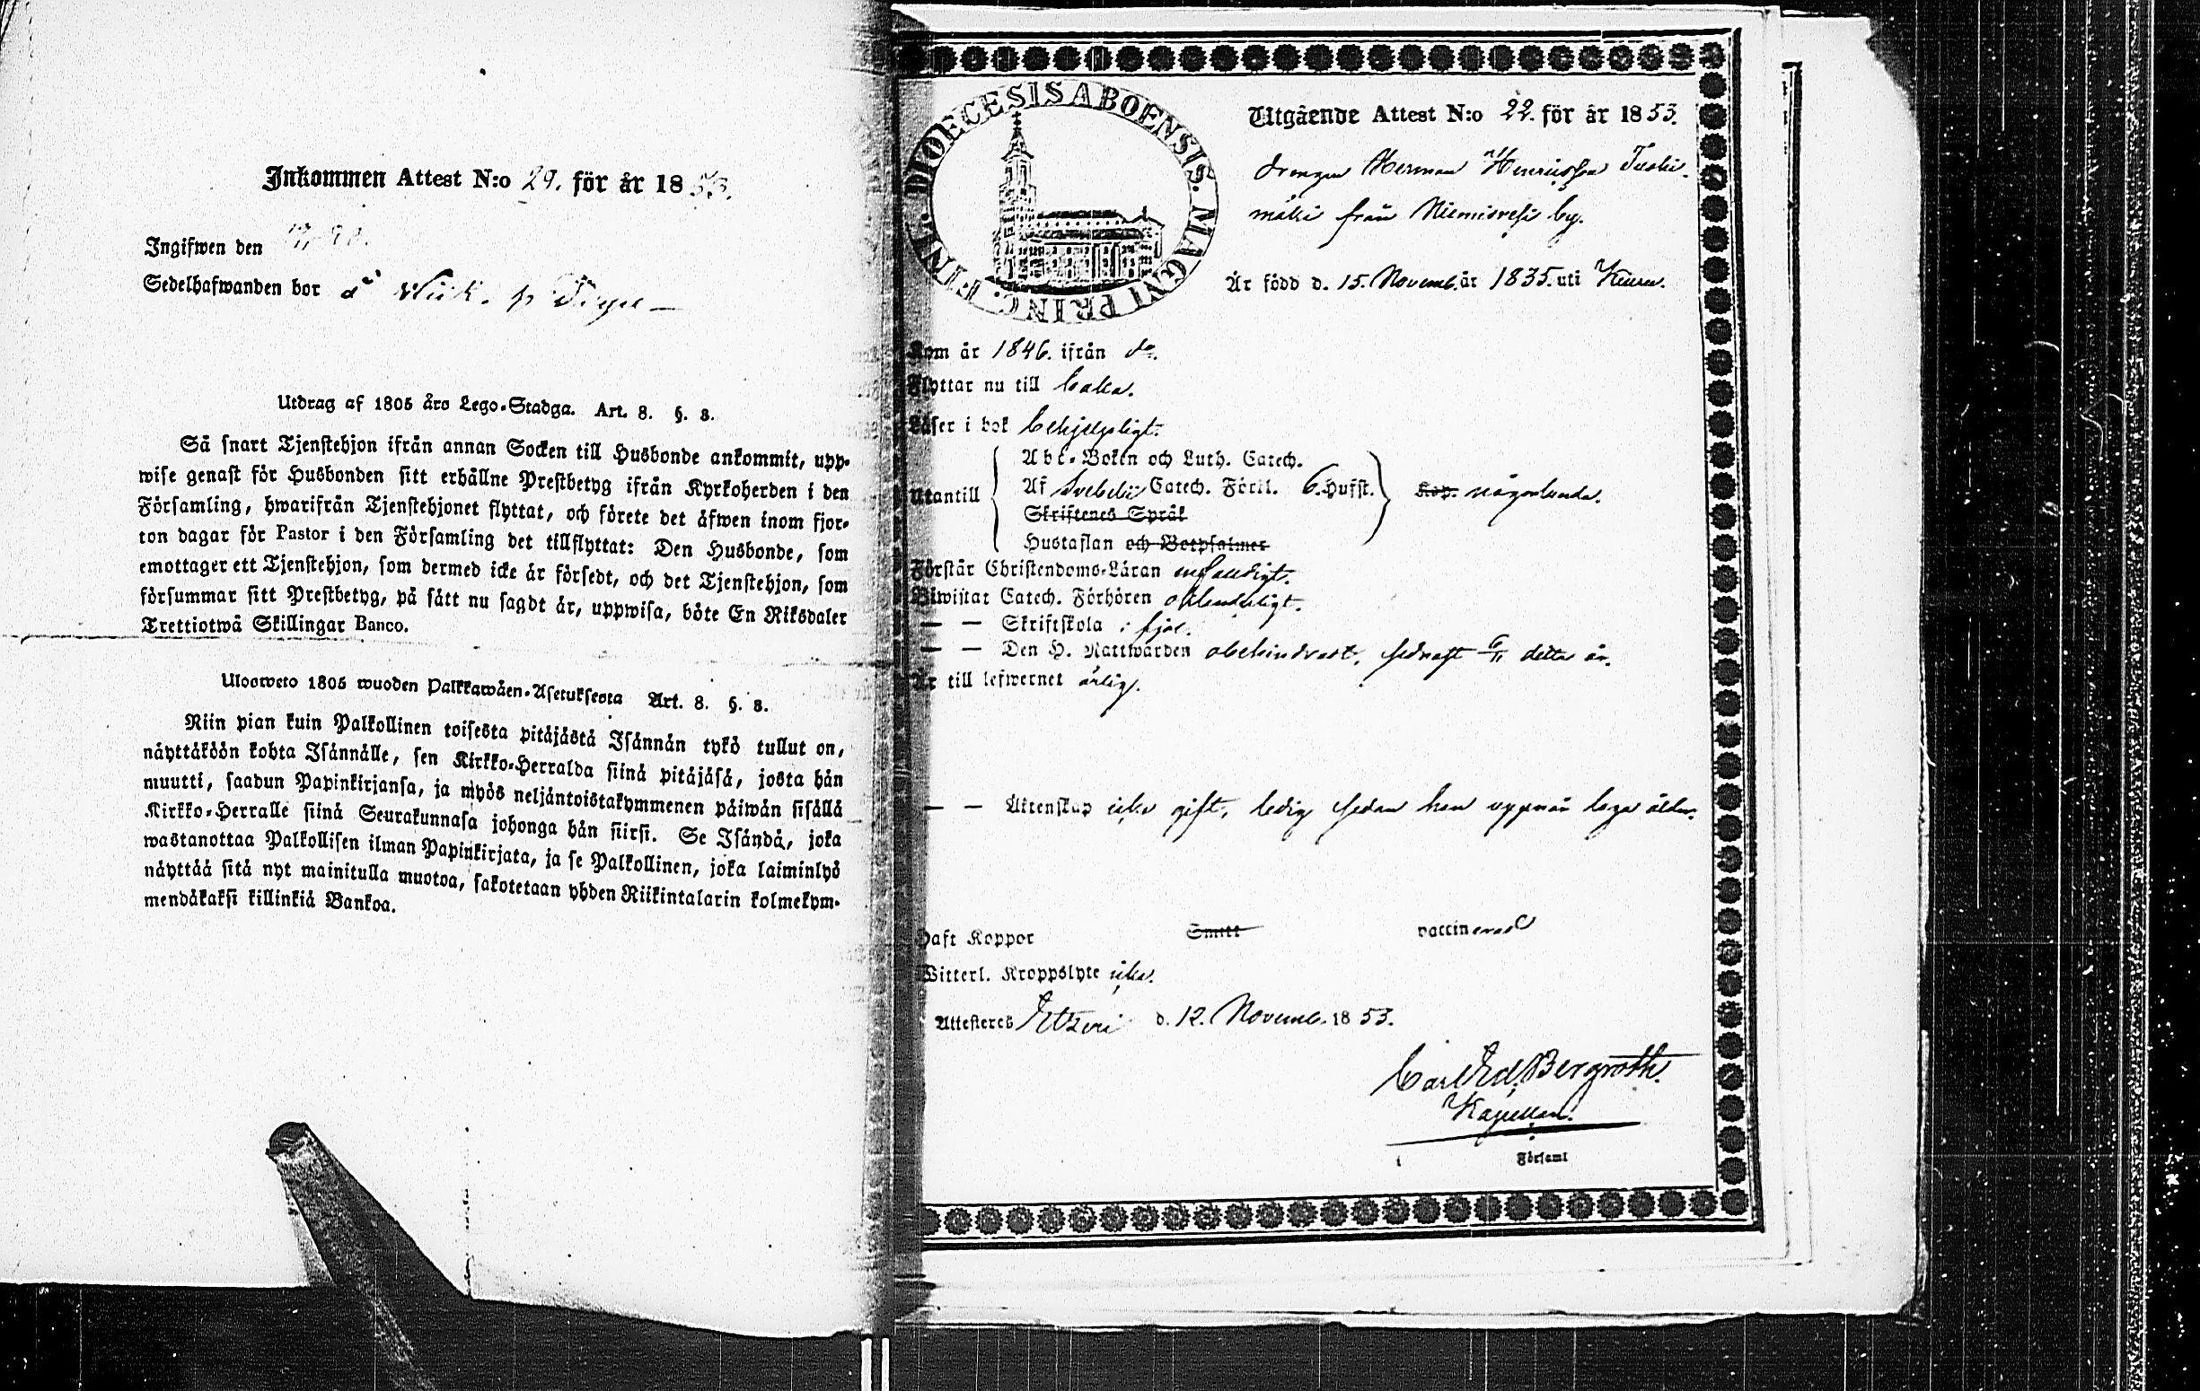 Inkommen Attest N:o 29. för år 1853.
Ingifwen den
Sedelhafwanden bor å
Utdrag af 1805 års Lego-Stadga. Art. 8. §. 8.
Så snart Tjenstehjon ifrån annan Socken till Husbonde ankommit, upp-
wise genast för Husbonden sitt erhållne Prestbetyg ifrån Kyrkoherden i den
Församling, hwarifrån Tjenstehjonet flyttat, och förete det äfwen inom fjor-
ton dagar för Pastor i den Församling det tillflyttat: Den Husbonde, som
emottager ett Tjenstehjon, som dermed icke är försedt, och det Tjenstehjon, som
försummar sitt Prestbetyg, på sätt nu sagdt är, uppwisa, böte En Riksdaler
Trettiotwå Skillingar Banco.
Ulosweto 1805 wuoden Palkkawäen-Asetuksesta Art. 8. §. 8.
Niin pian kuin Palkollinen toisesta pitäjästä Isännän tykö tullut on,
näyttäköön kohta Isännälle, sen Kirkko-Herralda siinä pitäjäsä, josta hän
muutti, saadun Papinkirjansa, ja myös neljäntoistakymmenen päiwän sisällä
Kirkko-Herralle siinä Seurakunnasa johonga hän siirsi. Se Isändä, joka
wastanottaa Palkollisen ilman Papinkirjata, ja se Palkollinen, joka laiminlyö
näyttää sitä nyt mainitulla muotoa, sakotetaan yhden Riikintalarin kolmekym-
mendäkaksi killinkiä Bankoa.
DIOECESIS ABOENSIS. MAGNI PRINC. FINL.
Utgående Attest N:o 22. för år 1853.
drengen Herman Henricsson Tuski-
mäki från Niemisvesi by.
Är född d. 15. Novemb. år 1835. uti Keuru.
Kom år 1846. ifrån do.
Flyttar nu till
Läser i bok behjelpligt.
Abc-Boken och Luth. Catech.
Utantill Af Svebelii Catech. Förkl. 6. Hufst. Kap. någorlunda.
Skriftenes Språk
Hustaflan och Botpsalmer
Förstår Christendoms-Läran enfaldigt.
Biwistat Catech. Förhören ordentligt.
— — Skriftskola i fjol.
— — Den H. Nattwarden obehindradt, sednast 6/11 detta år.
Är till lefwernet ärlig.
— — Äktenskap icke gift, ledig sedan han uppnår laga ålder.
Haft Koppor Smitt vaccinerad
Witterl. Kroppslyte icke.
Attesteres Etseri d. 12. Novemb. 1853.
Carl Ed. Bergroth.
Kapellan.
i Församl